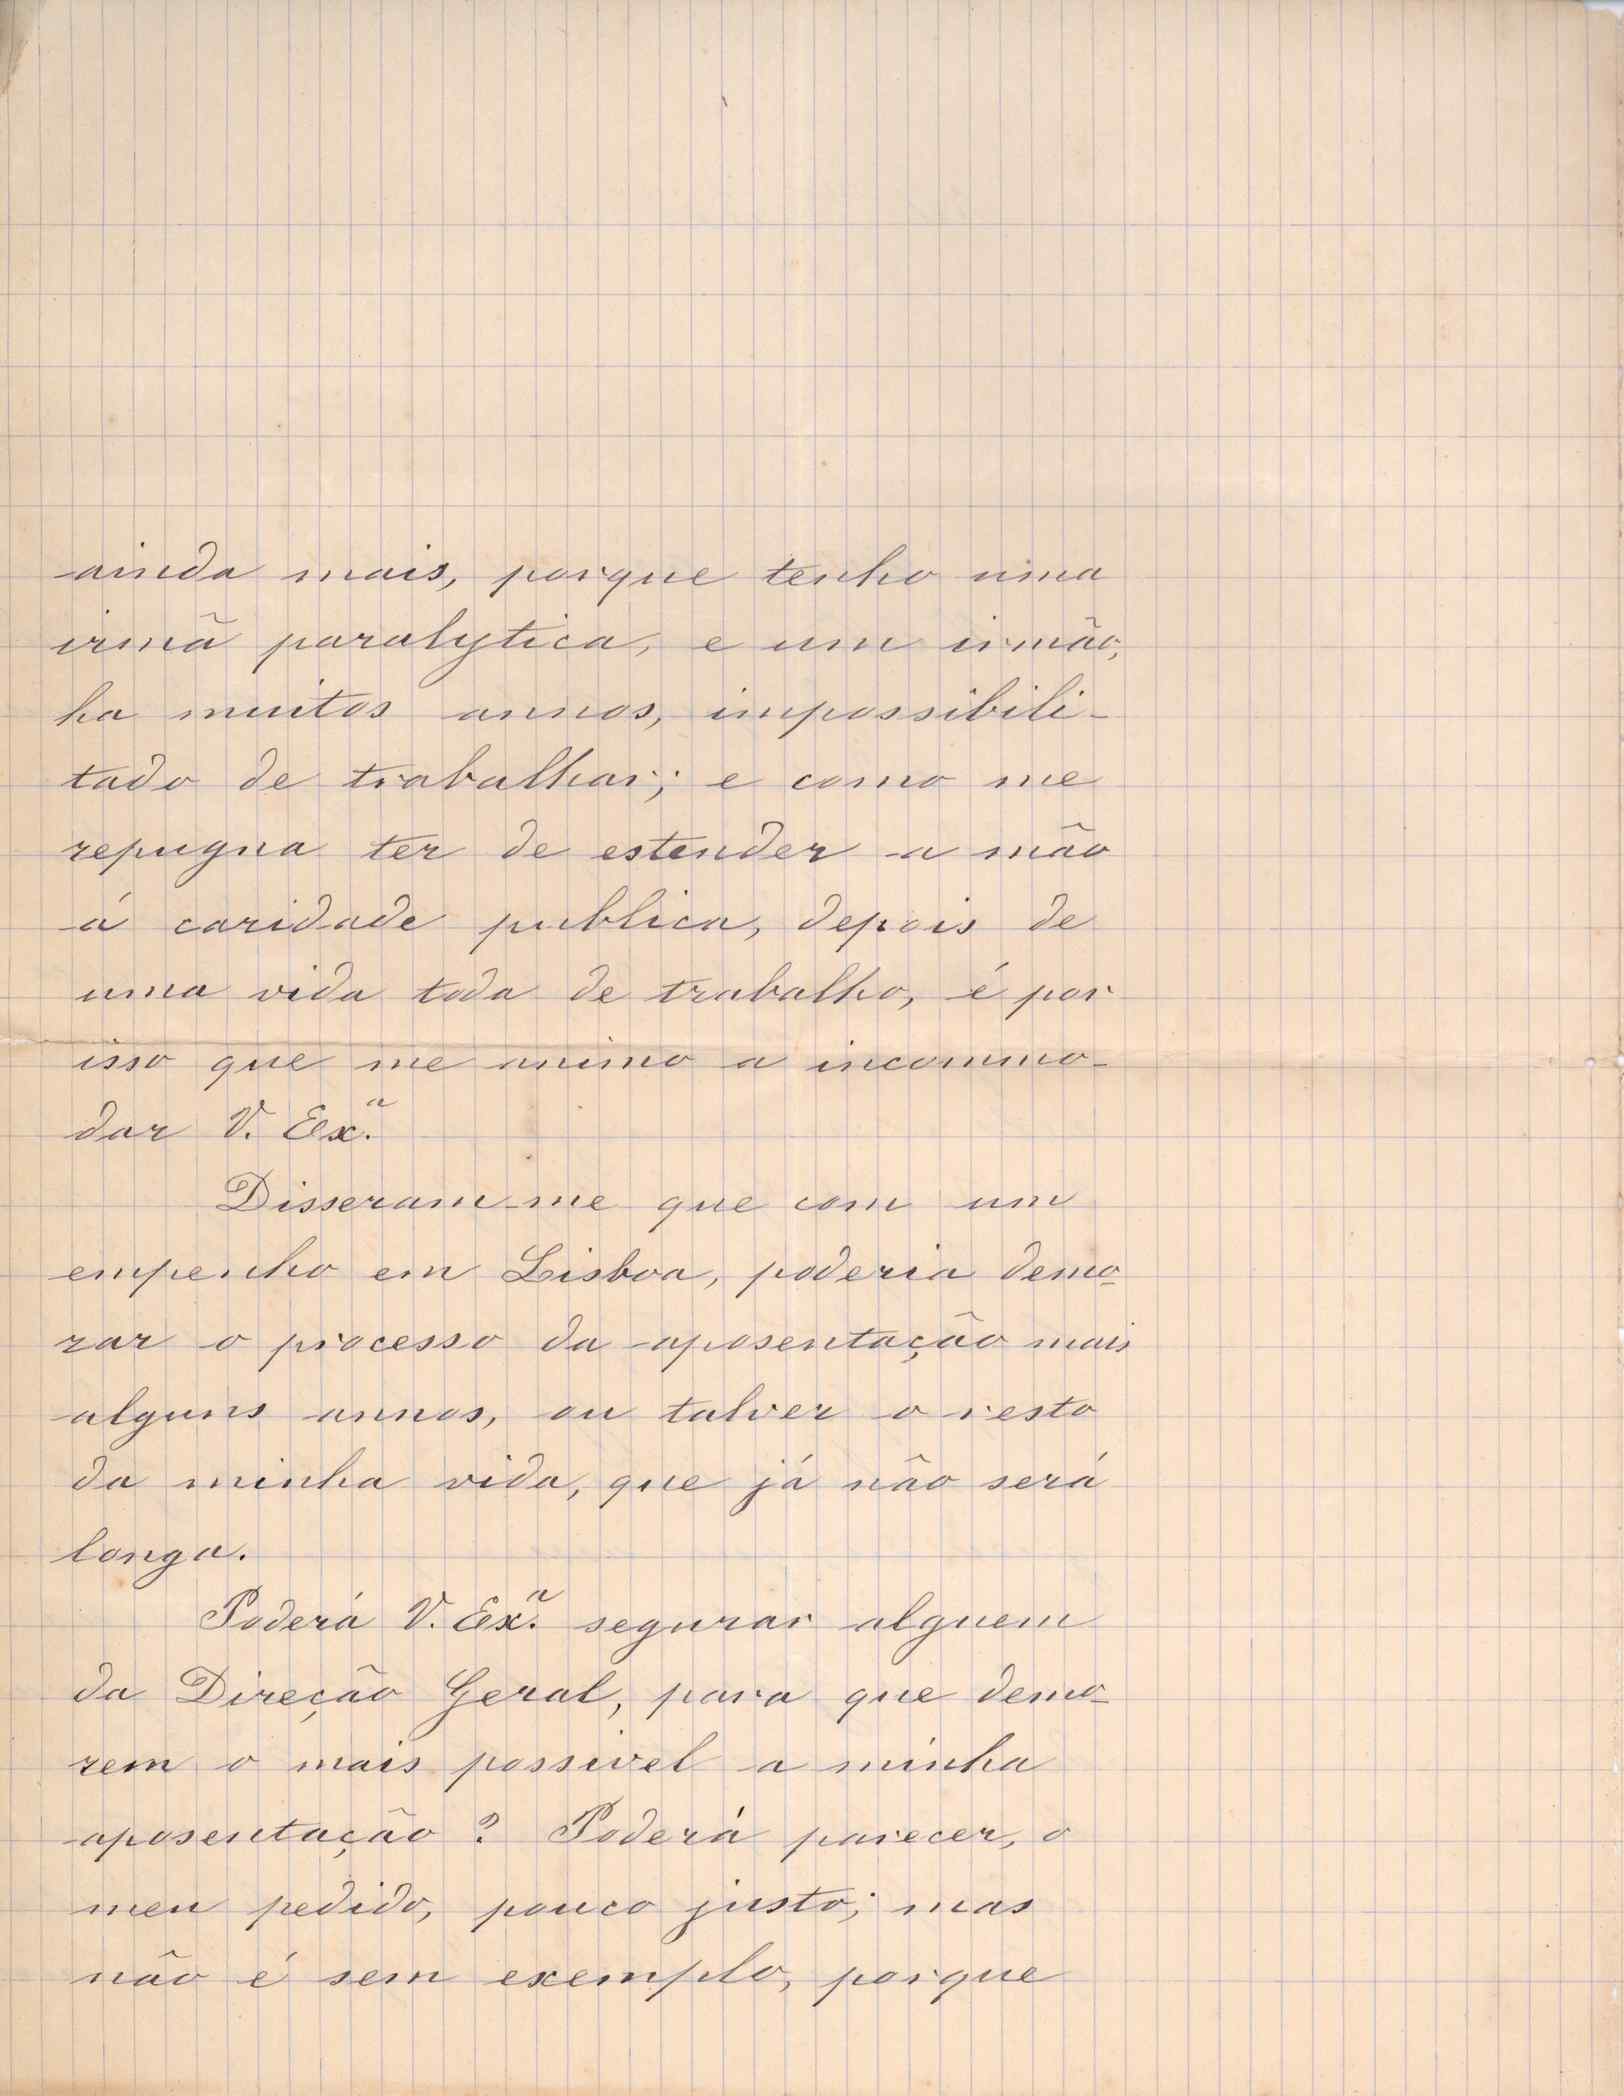 ainda mais, porque tenho uma
irmã paralytica, e um irmão,
ha muitos annos, impossibili-
tado de trabalhar; e como me
repugna ter de estender a mão
á caridade publica, depois de
uma vida toda de trabalho, é por
isso que me animo a incommo-
dar V. Ex.ª
Disseram-me que com um
empenho em Lisboa, poderia demo-
rar o processo da aposentação mais
alguns annos, ou talvez o resto
da minha vida, que já não será
longa.
Poderá V. Ex.ª segurar alguem
da Direção Geral, para que demo-
rem o mais possivel a minha
aposentação? Poderá parecer, o
meu pedido, pouco justo; mas
não é sem exemplo, porque